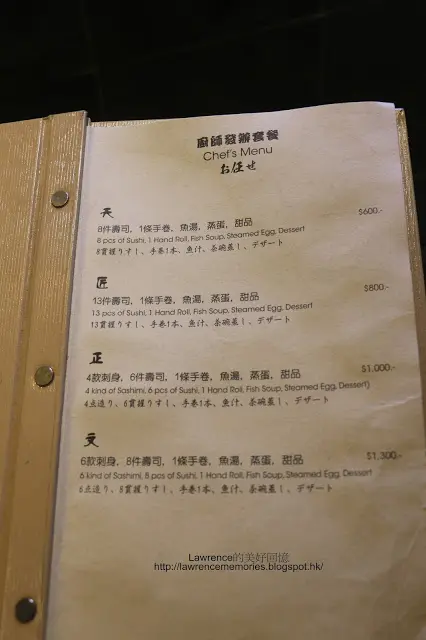 廚師發辦套餐
Chef's Menu
お任せ
天
8件壽司, 1條手卷, 魚湯, 蒸蛋, 甜品
$600.-
8 pcs of Sushi, 1 Hand Roll, Fish Soup, Steamed Egg, Dessert
8貫握りすし、手巻1本、魚汁、茶碗蒸し、デザート
匠
13件壽司, 1條手卷, 魚湯, 蒸蛋, 甜品
$800.-
13 pcs of Sushi, 1 Hand Roll, Fish Soup, Steamed Egg, Dessert
13貫握りすし、手巻1本、魚汁、茶碗蒸し、デザート
正
4款刺身, 6件壽司, 1條手卷, 魚湯, 蒸蛋, 甜品
$1,000.-
4 kind of Sashimi, 6 pcs of Sushi, 1 Hand Roll, Fish Soup, Steamed Egg, Dessert)
4点造り、6貫握りすし、手巻1本、魚汁、茶碗蒸し、デザート
6款刺身, 8件壽司, 1條手卷, 魚湯, 蒸蛋, 甜品
$1,300.-
6 kind of Sashimi, 8 pcs of Sushi, 1 Hand Roll, Fish Soup, Steamed Egg, Dessert
6点造り、8貫握りすし、手巻1本、魚汁、茶碗蒸し、デザート
Lawrence的美好回憶
http://lawrencememories.blogspot.hk/